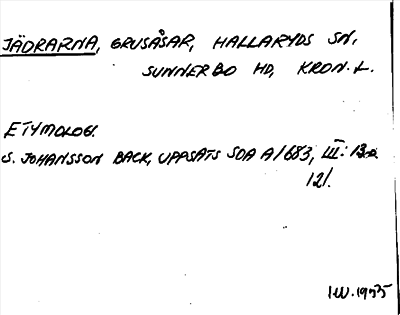 JÄDRARNA, GRUSÅSAR, HALLARYDS SN,
SUNNERBO HD, KRON. L.
ETYMOLOGI.
S. JOHANSSON BACK, UPPSATS SOA A1683, III:
121.
I.W. 1935